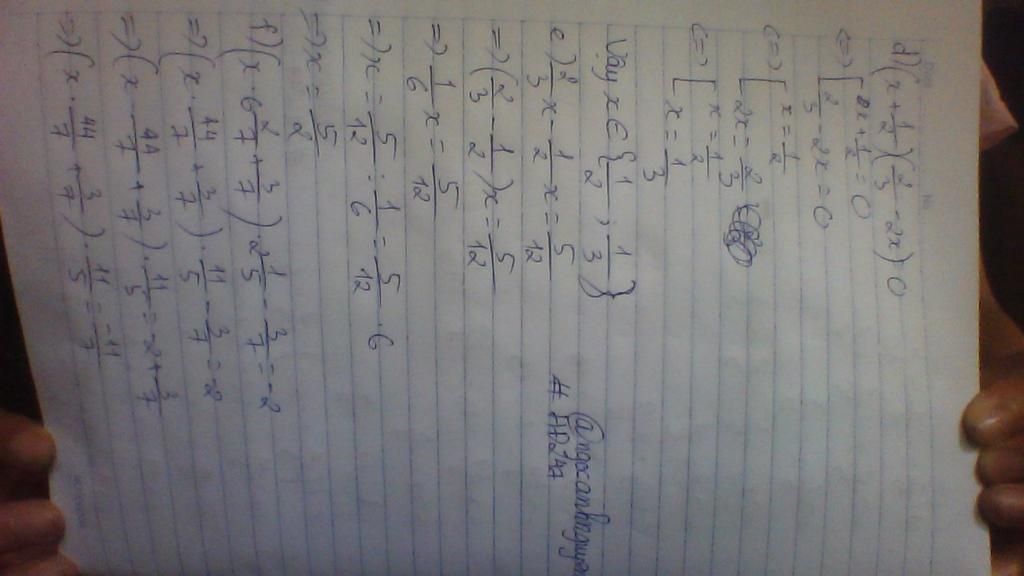 d) (x + 1/2)(2/3 - 2x) = 0
<=> [ x + 1/2 = 0
2/3 - 2x = 0
<=> [ x = 1/2
2x = 2/3
<=> [ x = 1/2
x = 1/3
Vậy x ∈ {1/2 ; 1/3}
e) 2/3 x - 1/2 x = 5/12
=> (2/3 - 1/2) x = 5/12
=> 1/6 x = 5/12
=> x = 5/12 : 1/6 = 5/12 . 6
=> x = 5/2
# HPZ
f) (x . 6 2/7 + 3/7) . 2 1/5 - 3/7 = -2
=> (x . 44/7 + 3/7) . 11/5 - 3/7 = -2
=> (x . 44/7 + 3/7) . 11/5 = -2 + 3/7
=> (x . 44/7 + 3/7) . 11/5 = -11/7